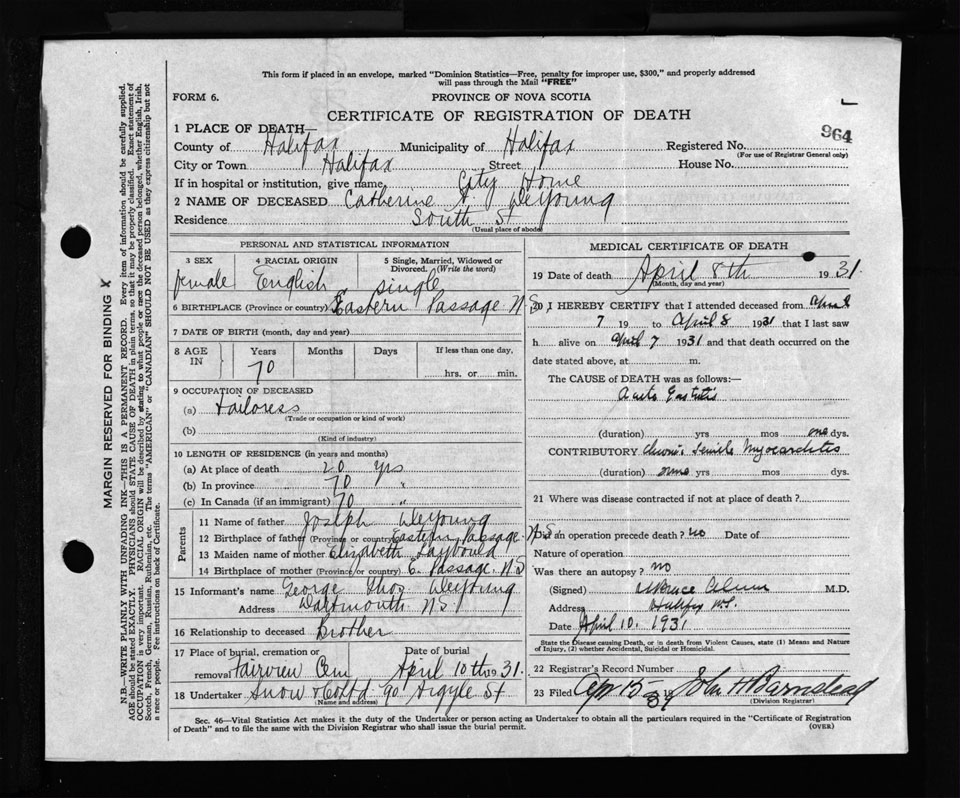 This form if placed in an envelope, marked "Dominion Statistics—Free, penalty for improper use, $300," and properly addressed
will pass through the Mail "FREE"
FORM 6.
PROVINCE OF NOVA SCOTIA
CERTIFICATE OF REGISTRATION OF DEATH
964
1 PLACE OF DEATH—
County of Halifax Municipality of Halifax Registered No.
(For use of Registrar General only)
City or Town Halifax Street House No.
If in hospital or institution, give name City Home
2 NAME OF DECEASED Catherine A. DeYoung
Residence South St
(Usual place of abode)
PERSONAL AND STATISTICAL INFORMATION
3 SEX 4 RACIAL ORIGIN 5 Single, Married, Widowed or Divorced. (Write the word)
female English single
6 BIRTHPLACE (Province or country) Eastern Passage N.S.
7 DATE OF BIRTH (month, day and year)
8 AGE IN Years Months Days If less than one day,
70 hrs. or min.
9 OCCUPATION OF DECEASED
(a) Tailoress
(Trade or occupation or kind of work)
(b)
(Kind of industry)
10 LENGTH OF RESIDENCE (in years and months)
(a) At place of death 20 yrs
(b) In province 70 "
(c) In Canada (if an immigrant) 70 "
Parents
11 Name of father Joseph DeYoung
12 Birthplace of father (Province or country) Eastern Passage N.S
13 Maiden name of mother Elizabeth
14 Birthplace of mother (Province or country) E. Passage N.S
15 Informant's name George Thos DeYoung
Address Dartmouth N.S
16 Relationship to deceased Brother
17 Place of burial, cremation or removal Fairview Cem Date of burial April 10th 1931.
18 Undertaker Snow & Co Ltd 90 Argyle St
(Name and address)
MEDICAL CERTIFICATE OF DEATH
19 Date of death April 8th 1931
(Month, day and year)
20 I HEREBY CERTIFY that I attended deceased from April
7 19 to April 8 1931 that I last saw
h alive on April 7 1931 and that death occurred on the
date stated above, at m.
The CAUSE of DEATH was as follows:—
(duration) yrs mos one dys.
CONTRIBUTORY Chronic Senile Myocarditis
(duration) yrs mos dys.
21 Where was disease contracted if not at place of death?
Did an operation precede death? no Date of
Nature of operation
Was there an autopsy? no
(Signed) M.D.
Address Halifax N.S.
Date April 10. 1931
State the Disease causing Death, or in death from Violent Causes, state (1) Means and
Nature of Injury, (2) whether Accidental, Suicidal or Homicidal.
22 Registrar's Record Number
23 Filed Apr 15 1931 John H Barnstead
(Division Registrar)
Sec. 46—Vital Statistics Act makes it the duty of the Undertaker or person acting as Undertaker to obtain all the particulars required in the "Certificate of Registration
of Death" and to file the same with the Division Registrar who shall issue the burial permit.
(OVER)
MARGIN RESERVED FOR BINDING
N.B.—WRITE PLAINLY WITH UNFADING INK—THIS IS A PERMANENT RECORD. Every item of information should be carefully supplied.
AGE should be stated EXACTLY. PHYSICIANS should STATE CAUSE OF DEATH in plain terms, so that it may be properly classified. Exact statement of
OCCUPATION is very important. RACIAL ORIGIN will be described by stating to what people or race the deceased person belonged, whether English, Irish,
Scotch, French, German, Russian, Ruthenian, etc. The terms "AMERICAN" or "CANADIAN" SHOULD NOT BE USED as they express citizenship but not
a race or people. Fee instructions on back of Certificate.